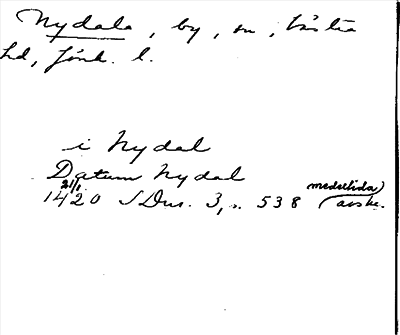 Nydala, by, sn, Västra
hd, Jönk. l.
i Nydal
Datum Nydal
21/1
1420 SDns. 3, s. 538 (medeltida avskr.)